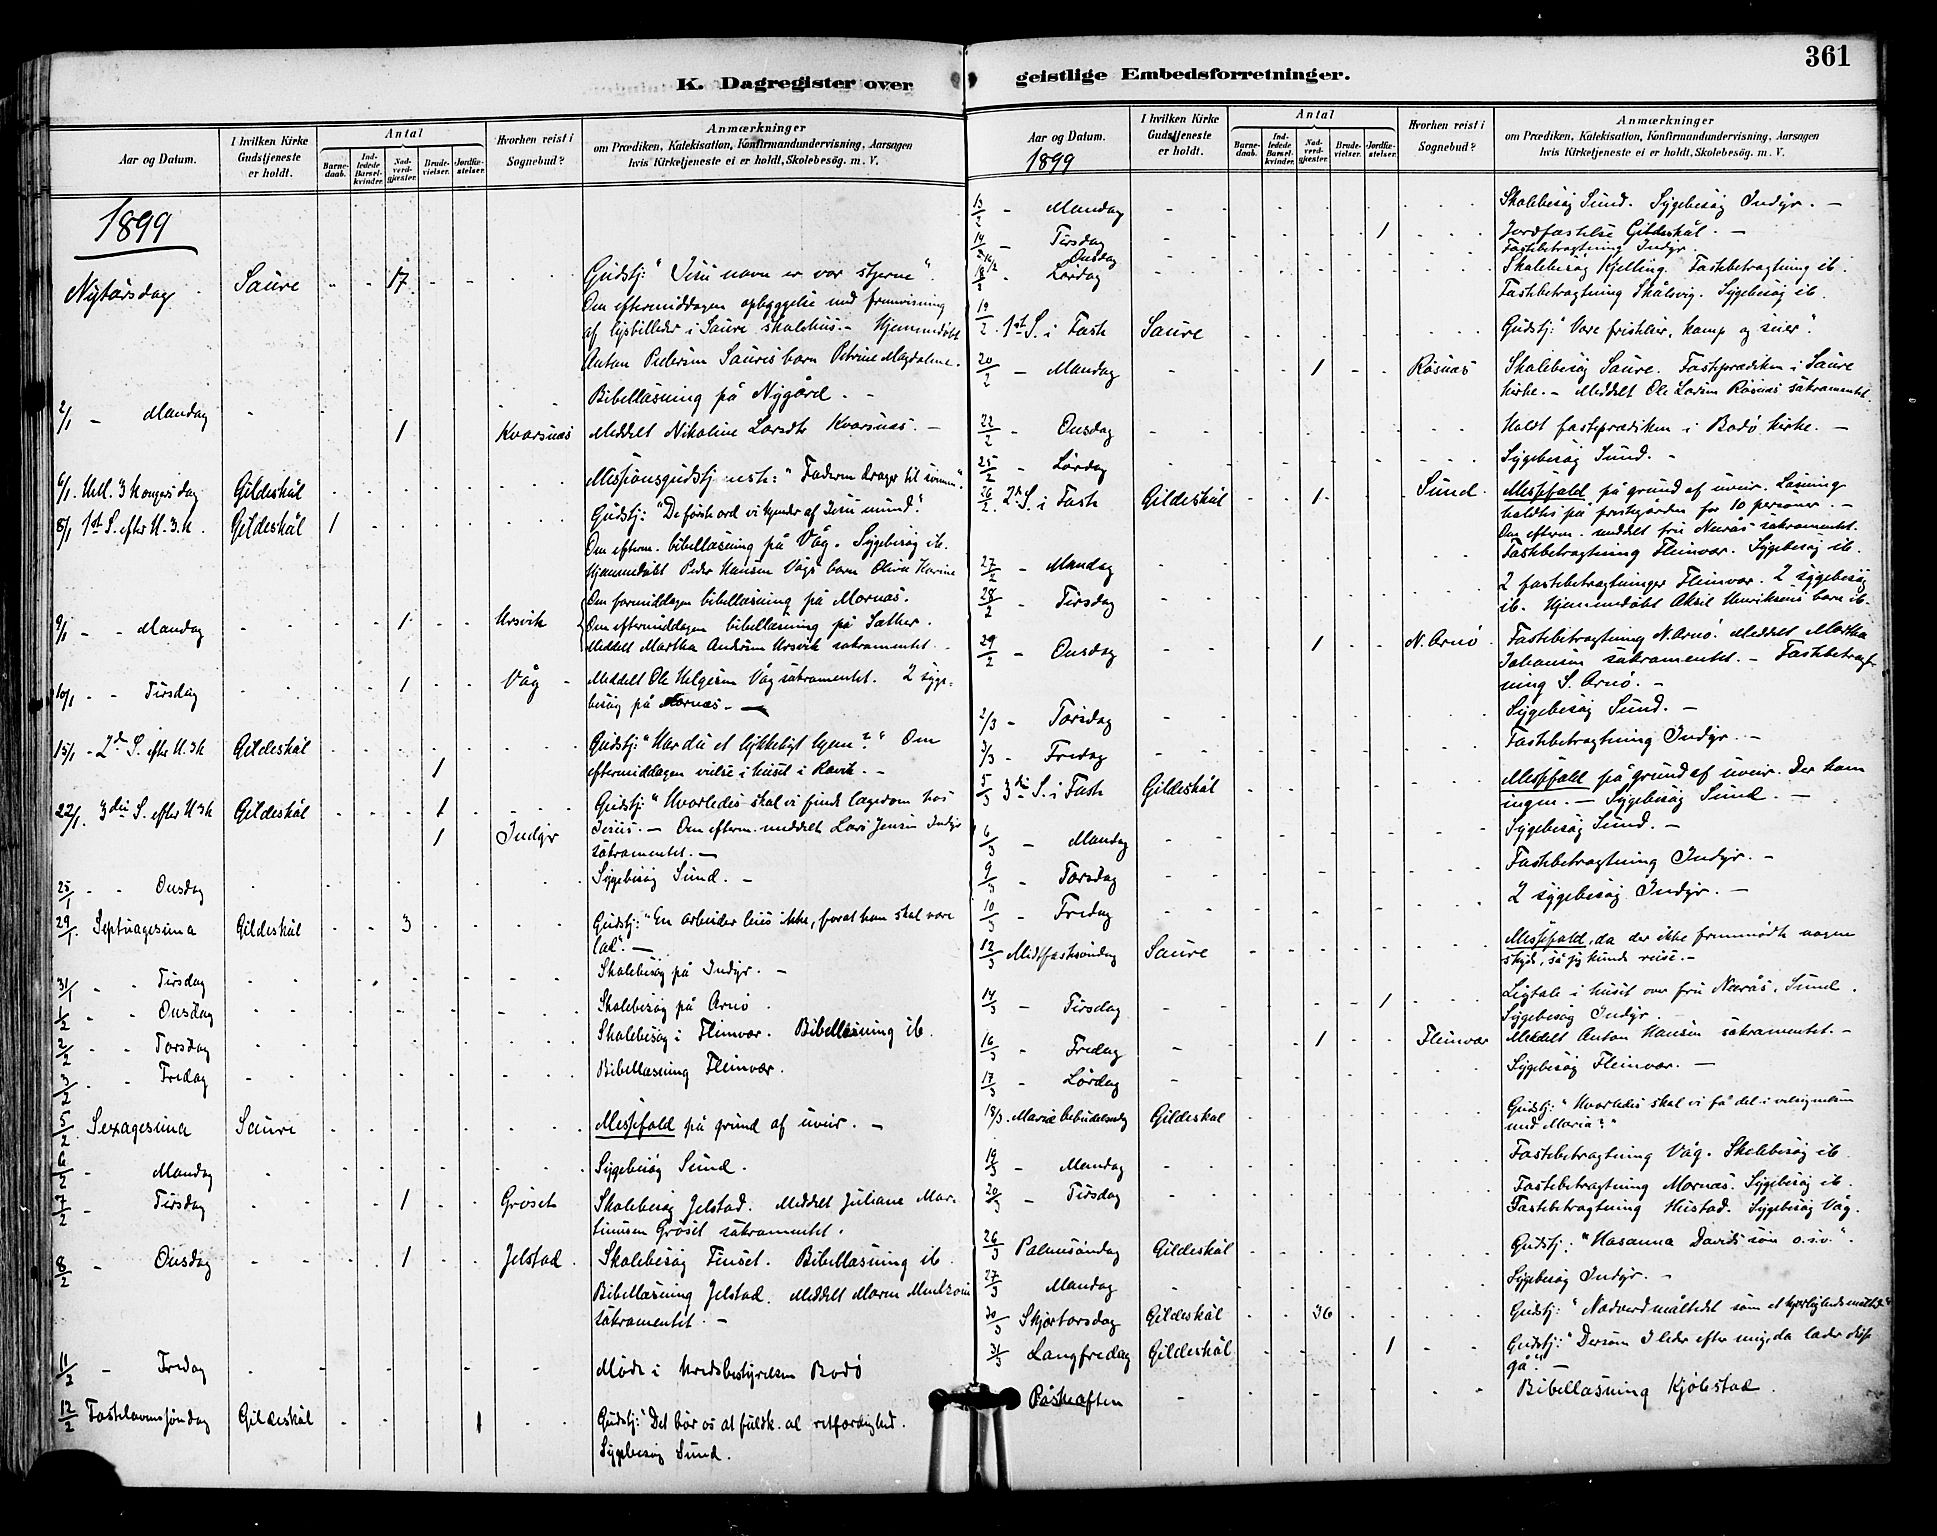 K. Dagregister over
geistlige Embedsforretninger.
361
Aar og Datum.
I hvilken Kirke Gudstjeneste er holdt.
Antal
Barnedaab.
Indledede Barselkvinder.
Nadverdgjæster.
Brudevielser.
Jordfæstelser.
Hvorhen reist i Sognebud?
Anmærkninger
om Prædiken, Katekisation, Konfirmandundervisning, Aarsagen
hvis Kirketjeneste ei er holdt, Skolebesög. m. V.
1899
Nytårsdag Saure 17 Gudstj: "Jesu navn er vor stjerne".
Om eftermiddagen opbyggelse med fremvisning
af lysbilleder i Saure skolehus. - Hjemmedøbt
Anton Pedersen Saures barn Petrine Magdalene.
Bibellæsning på Nygård. -
2/1 - Mandag 1 Kvarsnæs Meddelt Nikoline Larsdtr Kvarsnæs. -
6/1. Hell. 3 Kongers dag Gildeskål Missionsgudstjeneste: "Faderen drager til sønnen".
8/1 1st S. efter H. 3. K. Gildeskål 1 Gudstj: "De første ord vi kjender af Jesu mund".
Om efterm. bibellæsning på Våg. Sygebesøg ib.
Hjemmedøbt Peder Hansen Vågs barn Oliva Karine
Om formiddagen bibellæsning på Mornæs.
9/1 - - Mandag 1 Horsvik Om eftermiddagen bibellæsning på Sæther.
Meddelt Martha Andersen Horsvik sakramentet. -
10/1 - - Tirsdag 1 Våg Meddelt Ole Helgesen Våg sakramentet. 2 syge-
besøg på Mornæs. -
15/1 - 2d S. efter H. 3 K Gildeskål Gudstj: "Har du et lykkeligt hjem?" Om
1 eftermiddagen vielse i huset i Ravik. -
22/1. 3die S. efter H 3 K Gildeskål 1 Gudstj: "Hvorledes skal vi finde lægedom hos
1 Indyr Jesus. - Om efterm. meddelt Lars Jensen Indyr
sakramentet. -
25/1 - - Onsdag Sygebesøg Sund. -
29/1. Septuagesima Gildeskål 3 Gudstj: "En arbeider leies ikke, forat han skal være
lad". -
31/1 - - Tirsdag Skolebesøg på Indyr. -
1/2 - - Onsdag Skolebesøg på Arnø.
2/2 - - Torsdag Skolebesøg i Fleinvær. Bibellæsning ib.
3/2 - - Fredag Bibellæsning Fleinvær.
5/2 Sexagesima Saure Messefald på grund af uveir. -
6/2 - Mandag Sygebesøg Sund.
7/2 - Tirsdag 1 Grøset Skolebesøg Jelstad. Meddelt Juliane Mar-
tinusen Grøset sakramentet.
8/2 - Onsdag 1 Jelstad Skolebesøg Finset. Bibellæsning ib.
Bibellæsning Jelstad. Meddelt Maren
sakramentet. -
11/2 - Fredag Møde i Kredsbestyrelsen Bodø
12/2 Fastelavnssøndag Gildeskål 1 Gudstj: "Det bør os at fuldk. al retfærdighed.
Sygebesøg Sund.
Aar og Datum.
1899
I hvilken Kirke Gudstjeneste er holdt.
Antal
Barnedaab.
Indledede Barselkvinder.
Nadverdgjæster.
Brudevielser.
Jordfæstelser.
Hvorhen reist i Sognebud?
Anmærkninger
om Prædiken, Katekisation, Konfirmandundervisning, Aarsagen
hvis Kirketjeneste ei er holdt, Skolebesög. m. V.
13/2 - Mandag Skolebesøg Sund. Sygebesøg Indyr. -
14/2 - Tirsdag 1 Jordfæstelse Gildeskål. -
Onsdag Fastebetragtning Indyr.
18/2 - Lørdag Skolebesøg Kjelling. Fastebetragtning ib.
Fastebetragtning Skålsvig. Sygebesøg ib.
19/2. 1st S. i Faste Saure Gudstj: "Vore fristelser, kamp og seier".
20/2 - Mandag 1 Røsnæs Skolebesøg Saure. Fasteprædiken i Saure
kirke. - Meddelt Ole Larsen Røsnæs sakramentet.
22/2 - Onsdag Holdt fasteprædiken i Bodø kirke. -
25/2 - Lørdag Sygebesøg Sund. -
26/2. 2d S. i Faste Gildeskål 1 Sund Messefald på grund af uveir. Læsning
holdtes på prestegården for 10 personer. -
Om efterm. meddelt fru Nærås sakramentet.
27/2 - Mandag Fastebetragtning Fleinvær. Sygebesøg ib.
28/2 - Tirsdag 2 fastebetragtninger Fleinvær. 2 sygebesøg
ib. Hjemmedøbt Aksel Henriksens barn ib.
29/2 - Onsdag 1 N. Arnø Fastebetragtning N. Arnø. Meddelt Martha
Johansen sakramentet. - Fastebetragt-
ning S. Arnø. -
2/3 - Torsdag Sygebesøg Sund. -
3/3 - Fredag Fastebetragtning Indyr. -
5/3 3die S. i Faste Gildeskål Messefald på grund af uveir. Der kom
ingen. - Sygebesøg Sund. -
6/3 - Mandag Sygebesøg Sund. -
9/3 - Torsdag Fastebetragtning Indyr. -
10/3 - Fredag 2 sygebesøg Indyr. -
12/3 Midfastesøndag Saure Messefald, da der ikke fremmødte nogen
skyds, så jeg kunde reise. -
14/3 - Tirsdag 1 Ligtale i huset over fru Nærås, Sund.
Sygebesøg Indyr. -
16/3 - Fredag 1 Fleinvær Meddelt Anton Hansen sakramentet. -
17/3 - Lørdag Sygebesøg Fleinvær. -
18/3. Mariæ bebudelsesdag Gildeskål Gudstj: "Hvorledes skal vi få del i velsignelsen
med Maria?"
19/3 - Mandag Fastebetragtning Våg. Skolebesøg ib.
20/3 - Tirsdag Fastebetragtning Mornæs. Sygebesøg ib.
Fastebetragtning Hustad. Sygebesøg Våg.
26/3 Palmesøndag Gildeskål Gudstj: "Hosanna Davids søn o.s.v."
27/3 Mandag Sygebesøg Indyr. -
30/3 Skjærtorsdag Gildeskål 36 Gudstj: "Nadverdmåltidet som et kjærlighedsmåltid"
31/3 Langfredag Gildeskål 1 Gudstj: "Dersom I leder efter mig, da lader disse
gå". -
Påskeaften Bibellæsning Kjølstad.